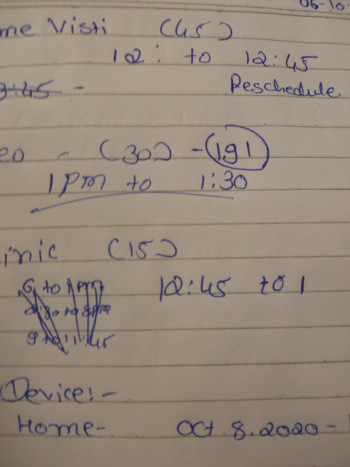 06-10
me Visti (45)
12: to 12:45
3:45 - Reschedule
eo - (30) - 191
1 pm to 1:30
inic (15)
6 to 1pm 12:45 to 1
9 to 11:45
Device:-
Home- Oct 8.2020-